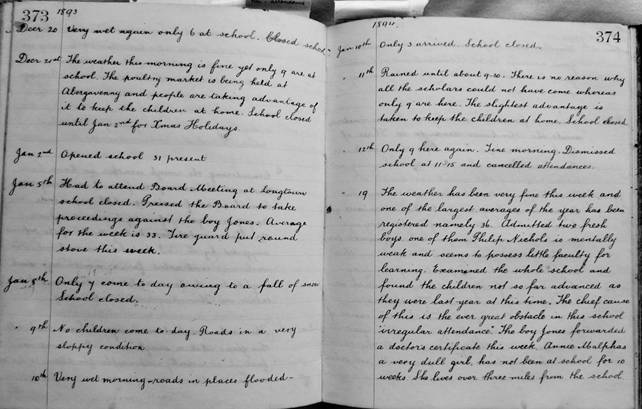 373 1893
Decr 20 Very wet again only 6 at school. Closed school
Decr 21st The weather this morning is fine yet only 9 are at
school. The poultry market is being held at
Abergavenny and people are taking advantage of
it to keep the children at home. School closed
until Jan 2nd for Xmas Holidays.
Jan 2nd Opened school 31 present
Jan 5th Had to attend Board Meeting at Longtown
school closed. Pressed the Board to take
proceedings against the boy Jones. Average
for the week is 33. Fire guard put round
stove this week.
Jan 8th Only 7 come to day owing to a fall of snow
School closed.
" 9th No children come to day. Roads in a very
sloppy condition.
10th Very wet morning-roads in places flooded-
1894. 374
Jan 10th Only 3 arrived. School closed.
" 11th Rained until about 9-20. There is no reason why
all the scholars could not have come whereas
only 9 are here. The slightest advantage is
taken to keep the children at home. School closed
" 12th Only 9 here again. Fine morning. Dismissed
school at 11-15 and cancelled attendances.
" 19 The weather has been very fine this week and
one of the largest averages of the year has been
registered namely 36. Admitted two fresh
boys, one of them Philip Nichols is mentally
weak and seems to possess little faculty for
learning. Examined the whole school and
found the children not so far advanced as
they were last year at this time. The chief cause
of this is the ever great obstacle in this school
"irregular attendance". The boy Jones forwarded
a doctor's certificate this week. Annie Malphas
a very dull girl, has not been at school for 10
weeks. She lives over three miles from the school.